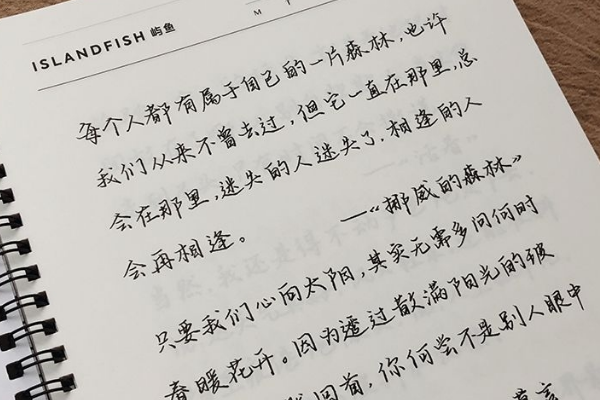 ISLANDFISH 屿鱼
M T
每个人都有属于自己的一片森林,也许
我们从来不曾去过,但它一直在那里,总
会在那里,迷失的人迷失了,相逢的人
会再相逢。 ——“挪威的森林”
只要我们心向太阳,其实无需多问何时
春暖花开。因为透过散满阳光的
你何尝不是别人眼中